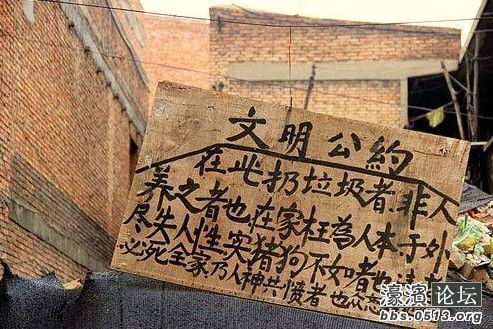 文明公約
在此扔垃圾者,非人
养之者也在家枉為人本,于外
尽失人性实猪狗不如者也
必死全家乃人神共愤者也众
濠滨论坛
bbs.0513.org